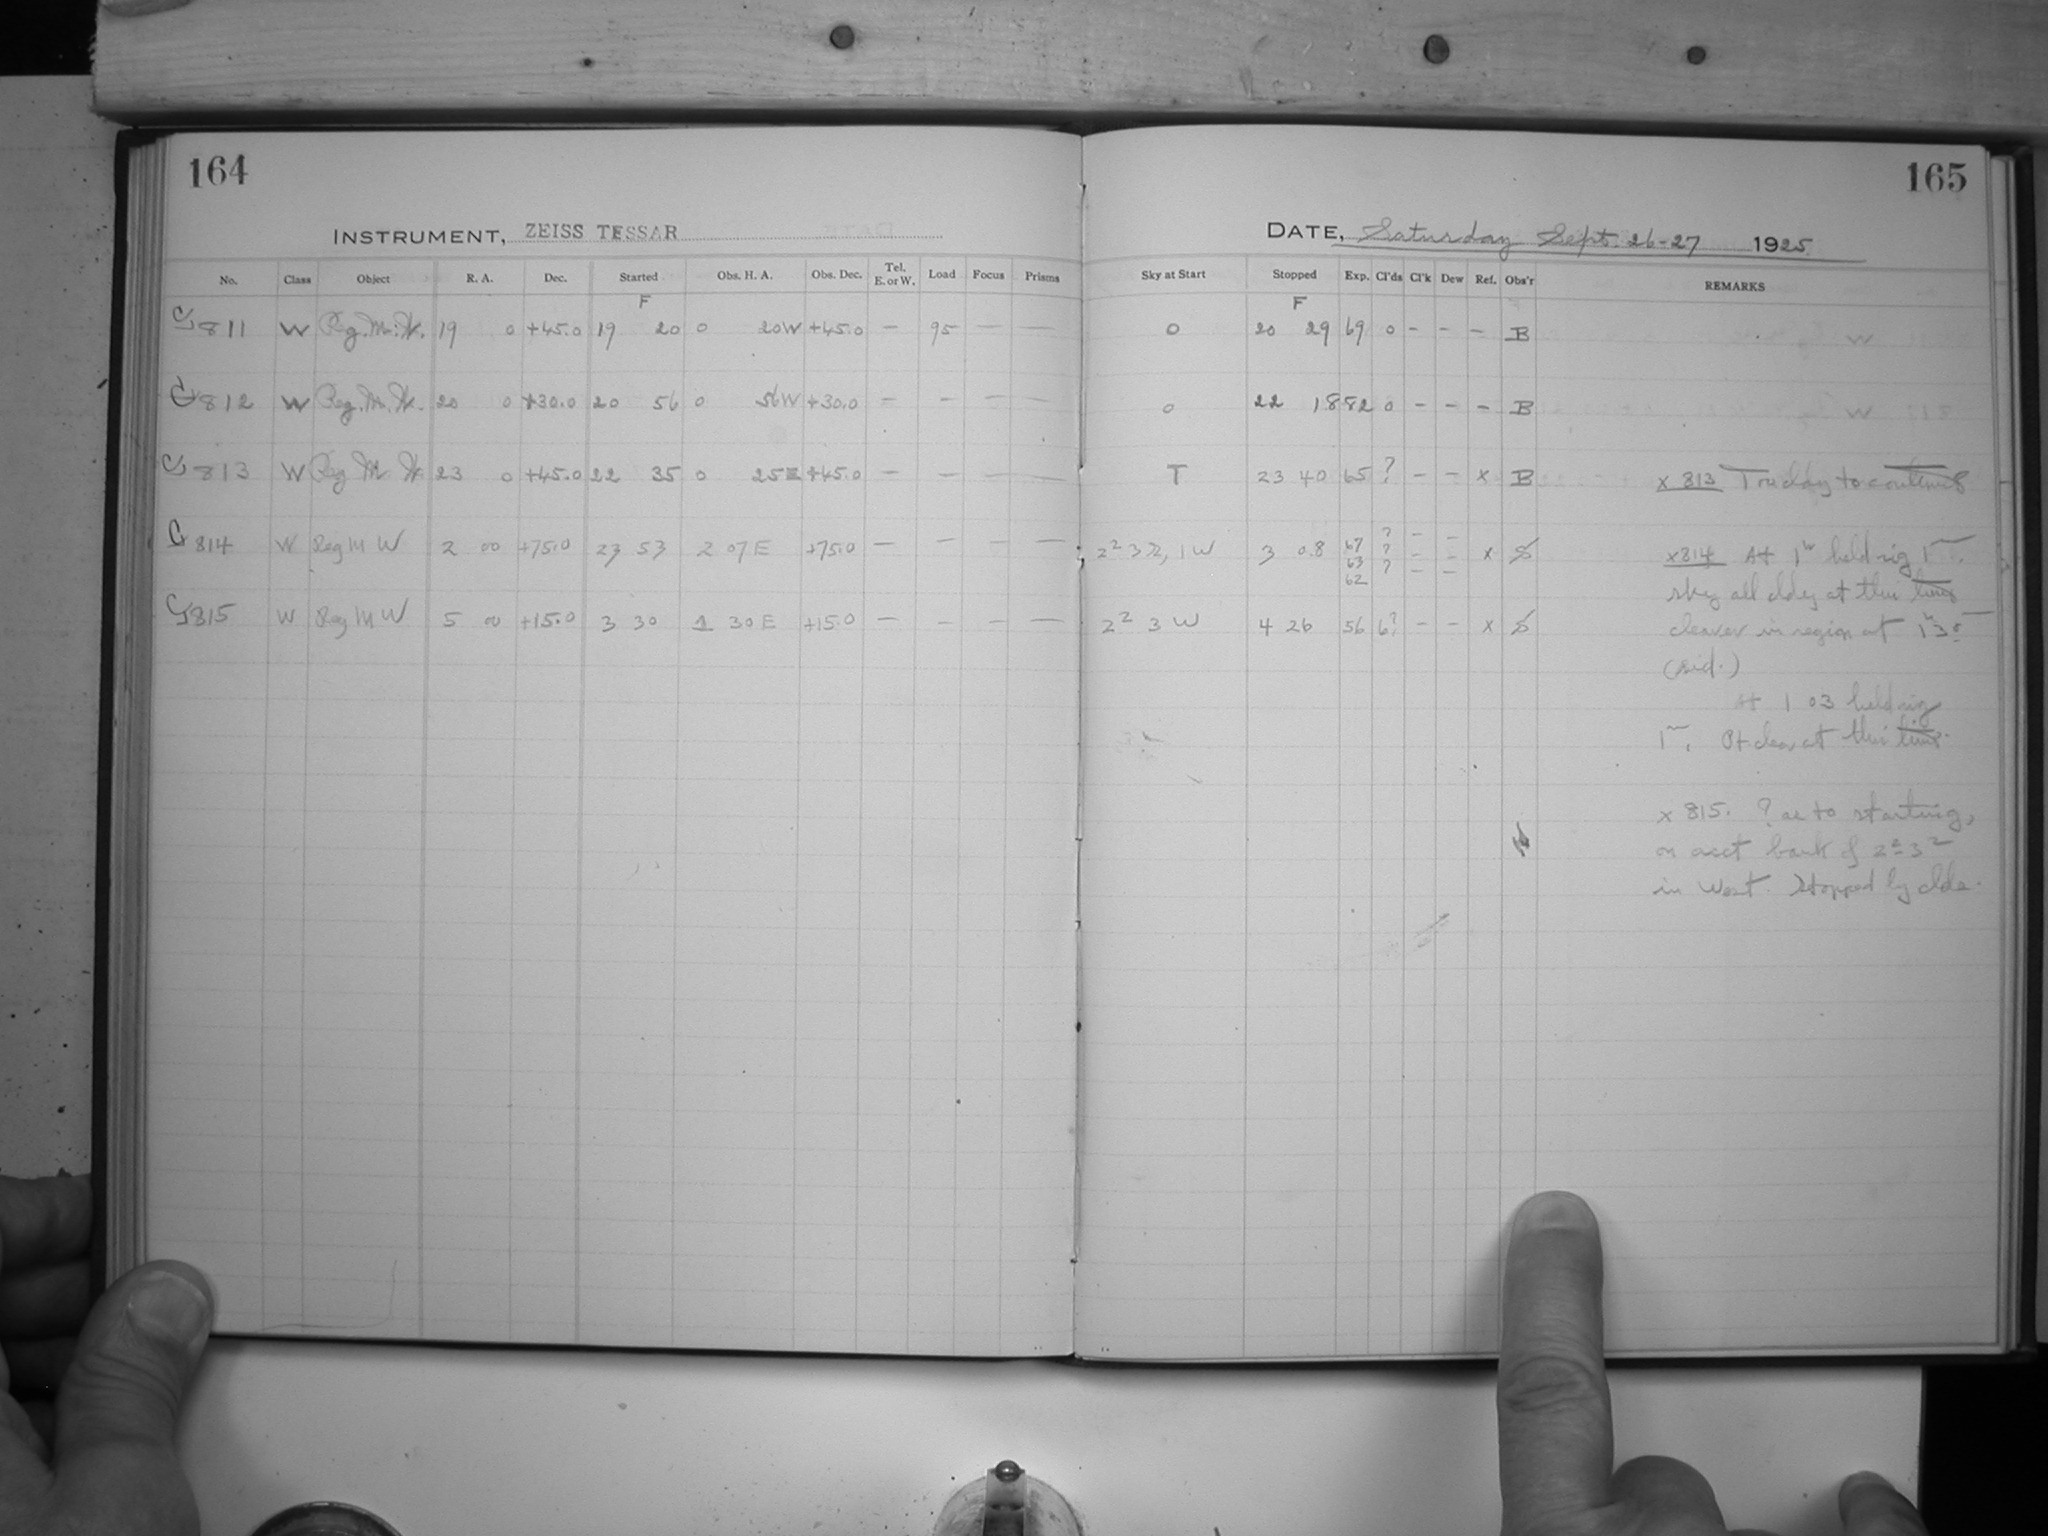 164
165
INSTRUMENT, ZEISS TESSAR
DATE, Saturday Sept. 26-27 1925
No. Class Object R. A. Dec. Started Obs. H. A. Obs. Dec. Tel. E. or W. Load Focus Prisms Sky at Start Stopped Exp. Cl'ds Cl'k Dew Ref. Obs'r REMARKS
F F
811 W Reg. M. W. 19 0 +45.0 19 20 0 20W +45.0 — 95 — — 0 20 29 69 0 - - - B
812 W Reg. M. W. 20 0 +30.0 20 56 0 56W +30.0 — — — — 0 22 18 82 0 - - - B
813 W Reg M W. 23 0 +45.0 22 35 0 25E +45.0 — — — — T 23 40 65 ? - - x B x 813 Too cldy to continue
814 W Reg M W 2 00 +75.0 23 53 2 07E +75.0 — — — — 3 08 67 ? - - x S x814 At 1h held rig 1m.
63 ? - -
62 ? - -
sky all cldy at this time
clearer in region at
(sid.)
815 W Reg M W 5 00 +15.0 3 30 1 30E +15.0 — — — — 2² 3 W 4 26 56 6? - - x S
At 1 03 held rig
1m. Pt clear at this time.
x 815. ? as to starting,
on acct bank of 2² 3²
in West. Stopped by clds.